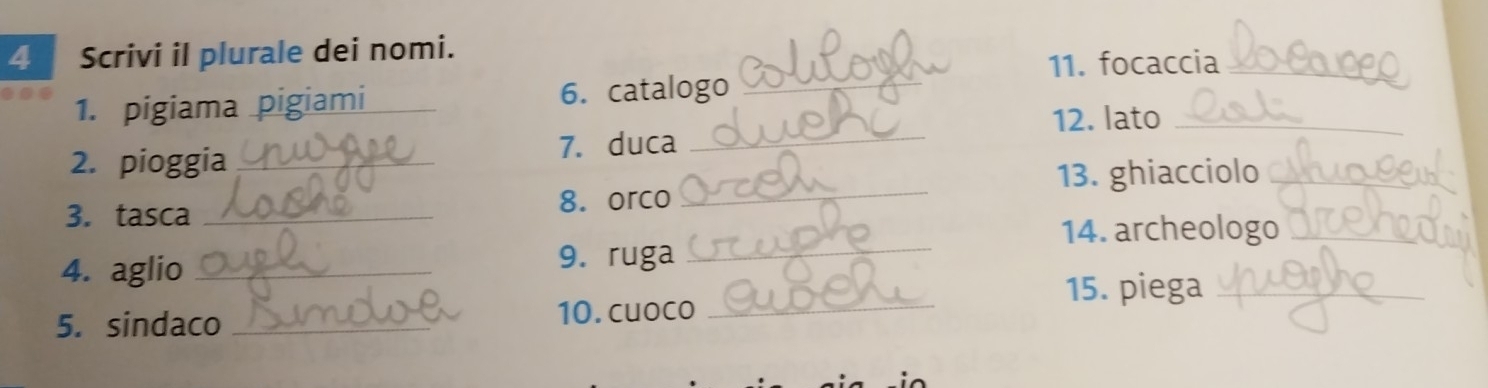 4 Scrivi il plurale dei nomi.
1. pigiama pigiami
2. pioggia piogge
3. tasca tasche
4. aglio agli
5. sindaco sindaci
6. catalogo cataloghi
7. duca duchi
8. orco orchi
9. ruga rughe
10. cuoco cuochi
11. focaccia focacce
12. lato lati
13. ghiacciolo
14. archeologo
15. piega pieghe